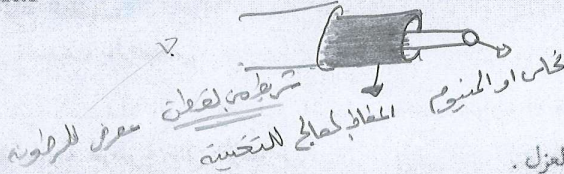 نحاس او المنيوم
المطاط المعالج للتغطية
شريط من القطن
معرض للرطوبة
لعزل .